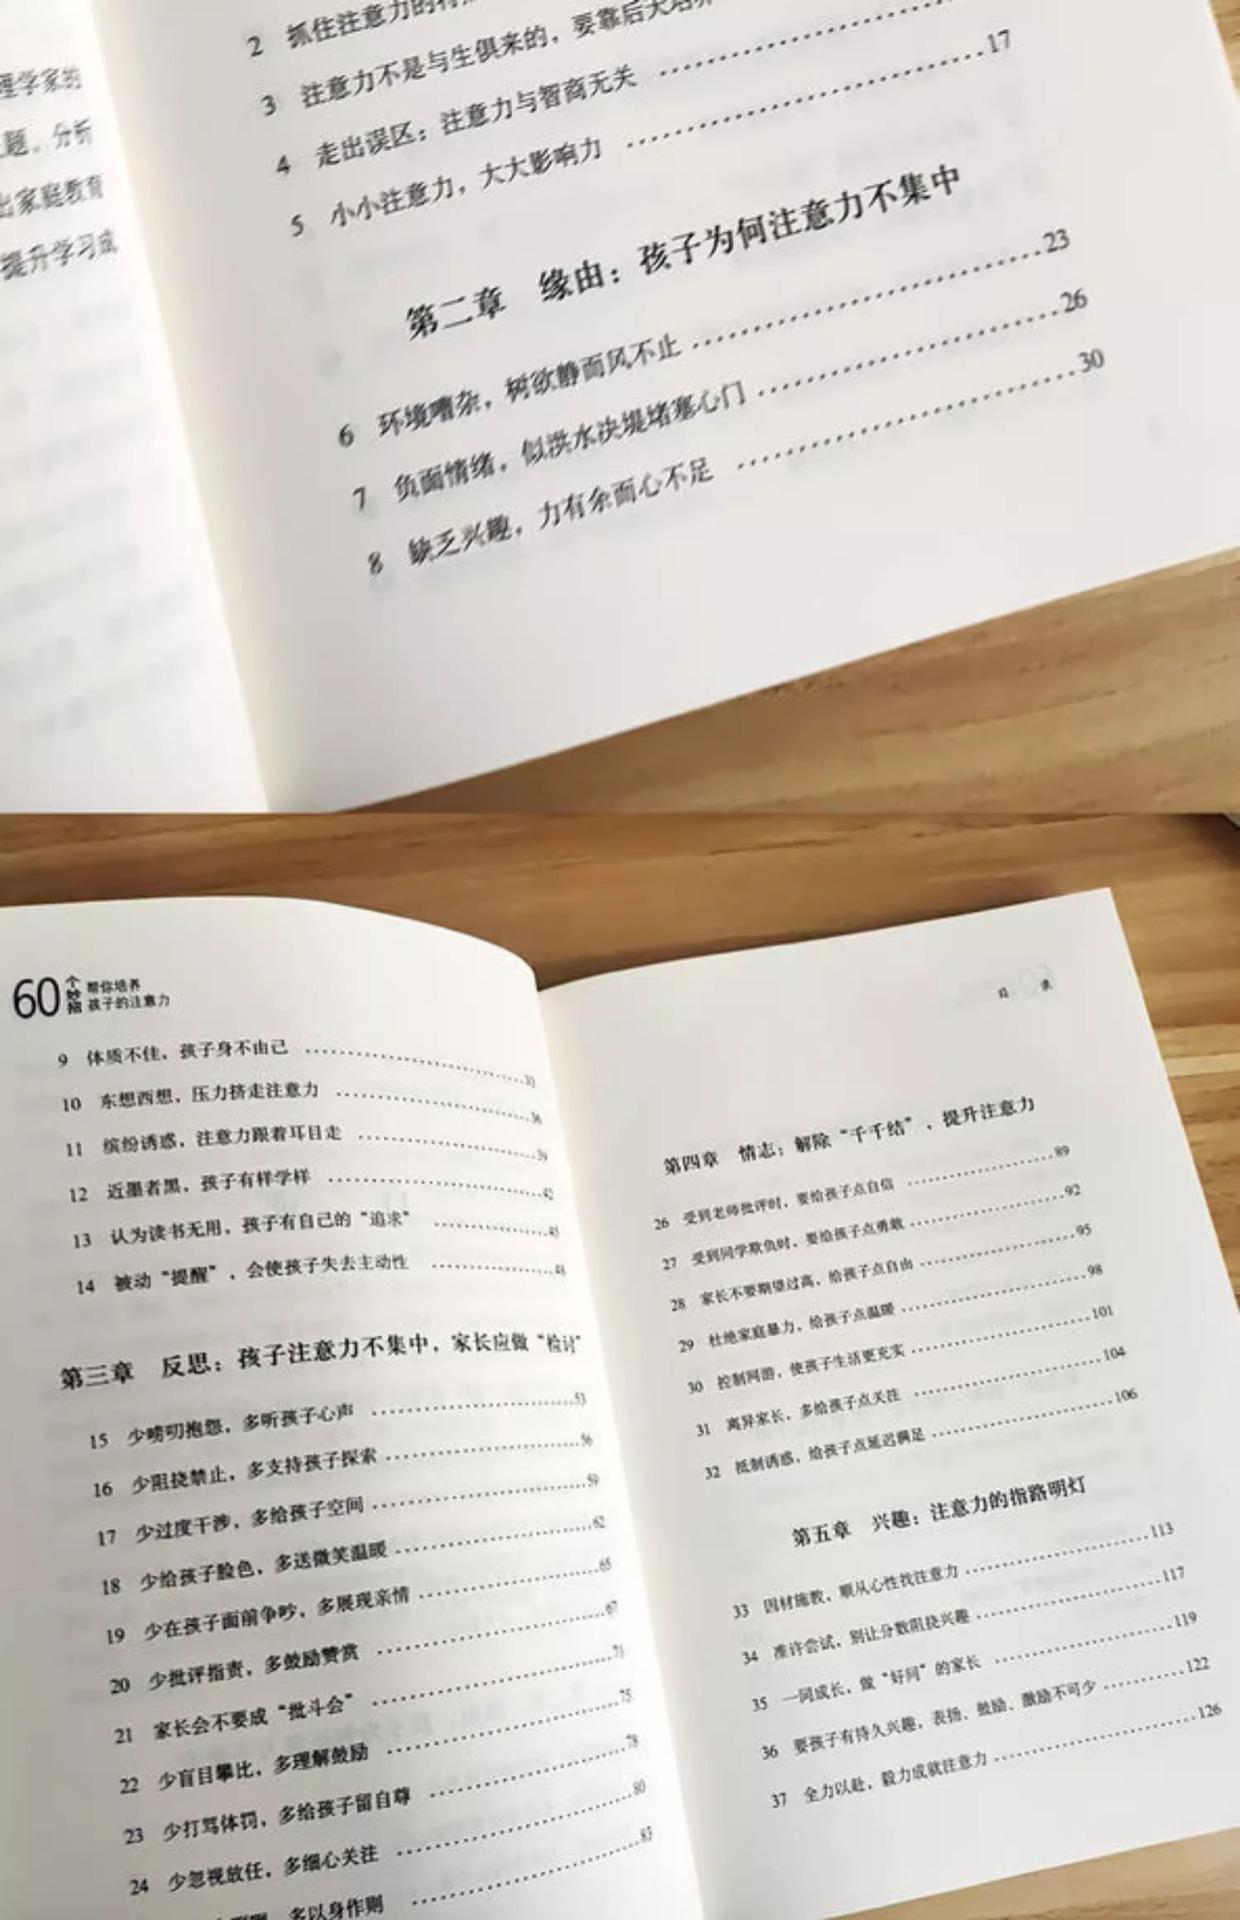 理学家的
题。分析
出家庭教育
提升学习成
2 抓住注意力的特
3 注意力不是与生俱来的，要靠后天培养
4 走出误区：注意力与智商无关
5 小小注意力，大大影响力 17
第二章 缘由：孩子为何注意力不集中
6 环境嘈杂，树欲静而风不止 23
7 负面情绪，似洪水决堤堵塞心门 26
8 缺乏兴趣，力有余而心不足 30
60个妙招 帮你培养
孩子的注意力
9 体质不佳，孩子身不由己 33
10 东想西想，压力挤走注意力 36
11 缤纷诱惑，注意力跟着耳目走 39
12 近墨者黑，孩子有样学样 42
13 认为读书无用，孩子有自己的“追求” 45
14 被动“提醒”，会使孩子失去主动性 48
第三章 反思：孩子注意力不集中，家长应做“检讨”
15 少唠叨抱怨，多听孩子心声 53
16 少阻挠禁止，多支持孩子探索 56
17 少过度干涉，多给孩子空间 59
18 少给孩子脸色，多送微笑温暖 62
19 少在孩子面前争吵，多展现亲情 65
20 少批评指责，多鼓励赞赏 67
21 家长会不要成“批斗会” 71
22 少盲目攀比，多理解鼓励 75
23 少打骂体罚，多给孩子留自尊 78
24 少忽视放任，多细心关注 80
多以身作则 83
目 录
第四章 情志：解除“千千结”，提升注意力
26 受到老师批评时，要给孩子点自信 89
27 受到同学欺负时，要给孩子点勇敢 92
28 家长不要期望过高，给孩子点自由 95
29 杜绝家庭暴力，给孩子点温暖 98
30 控制网游，使孩子生活更充实 101
31 离异家长，多给孩子点关注 104
32 抵制诱惑，给孩子点延迟满足 106
第五章 兴趣：注意力的指路明灯
33 因材施教，顺从心性找注意力 113
34 准许尝试，别让分数阻挠兴趣 117
35 一同成长，做“好问”的家长 119
36 要孩子有持久兴趣，表扬、鼓励、激励不可少 122
37 全力以赴，毅力成就注意力 126